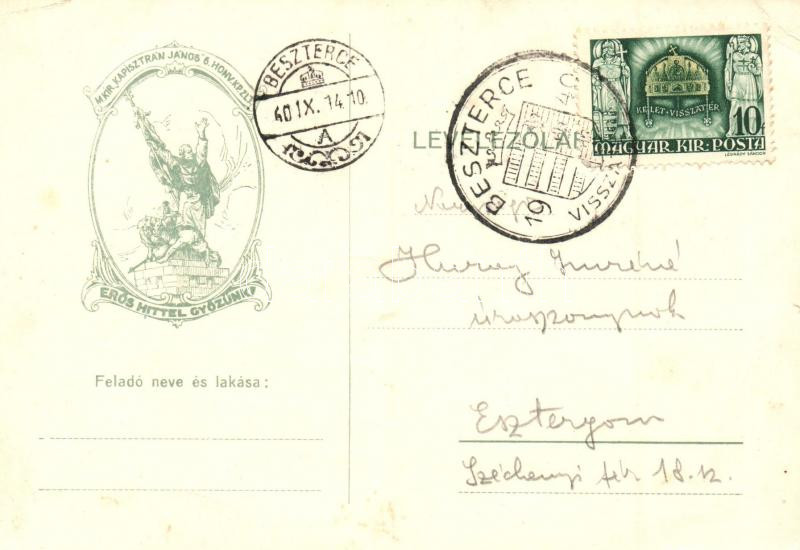 M. KIR. "KAPISZTRÁN JÁNOS" 6. HONV. KP. ZLJ.
ERŐS HITTEL GYŐZÜNK!
BESZTERCE
40 IX. 14. 10
A
BESZTERCE
VISSZA
19
40
KELET VISSZATÉR
10
MAGYAR·KIR·POSTA
LÉGRÁDY SÁNDOR
LEVELEZŐLAP
Imréné
úrasszonynak
Esztergom
Széchenyi tér 18. sz.
Feladó neve és lakása: